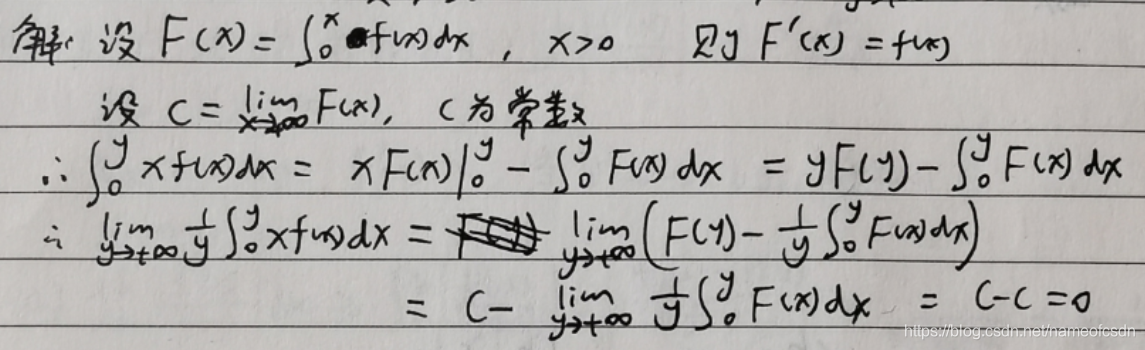 解: 设 F(x) = ∫₀ˣ f(x)dx , x>0 则 F'(x) = f(x)
设 C = lim_{x→+∞} F(x), C为常数
∴ ∫₀ʸ xf(x)dx = xF(x)|₀ʸ - ∫₀ʸ F(x)dx = yF(y) - ∫₀ʸ F(x)dx
∴ lim_{y→+∞} 1/y ∫₀ʸ xf(x)dx = lim_{y→+∞} (F(y) - 1/y ∫₀ʸ F(x)dx)
= C - lim_{y→+∞} 1/y ∫₀ʸ F(x)dx = C-C=0
https://blog.csdn.net/nameofcsdn